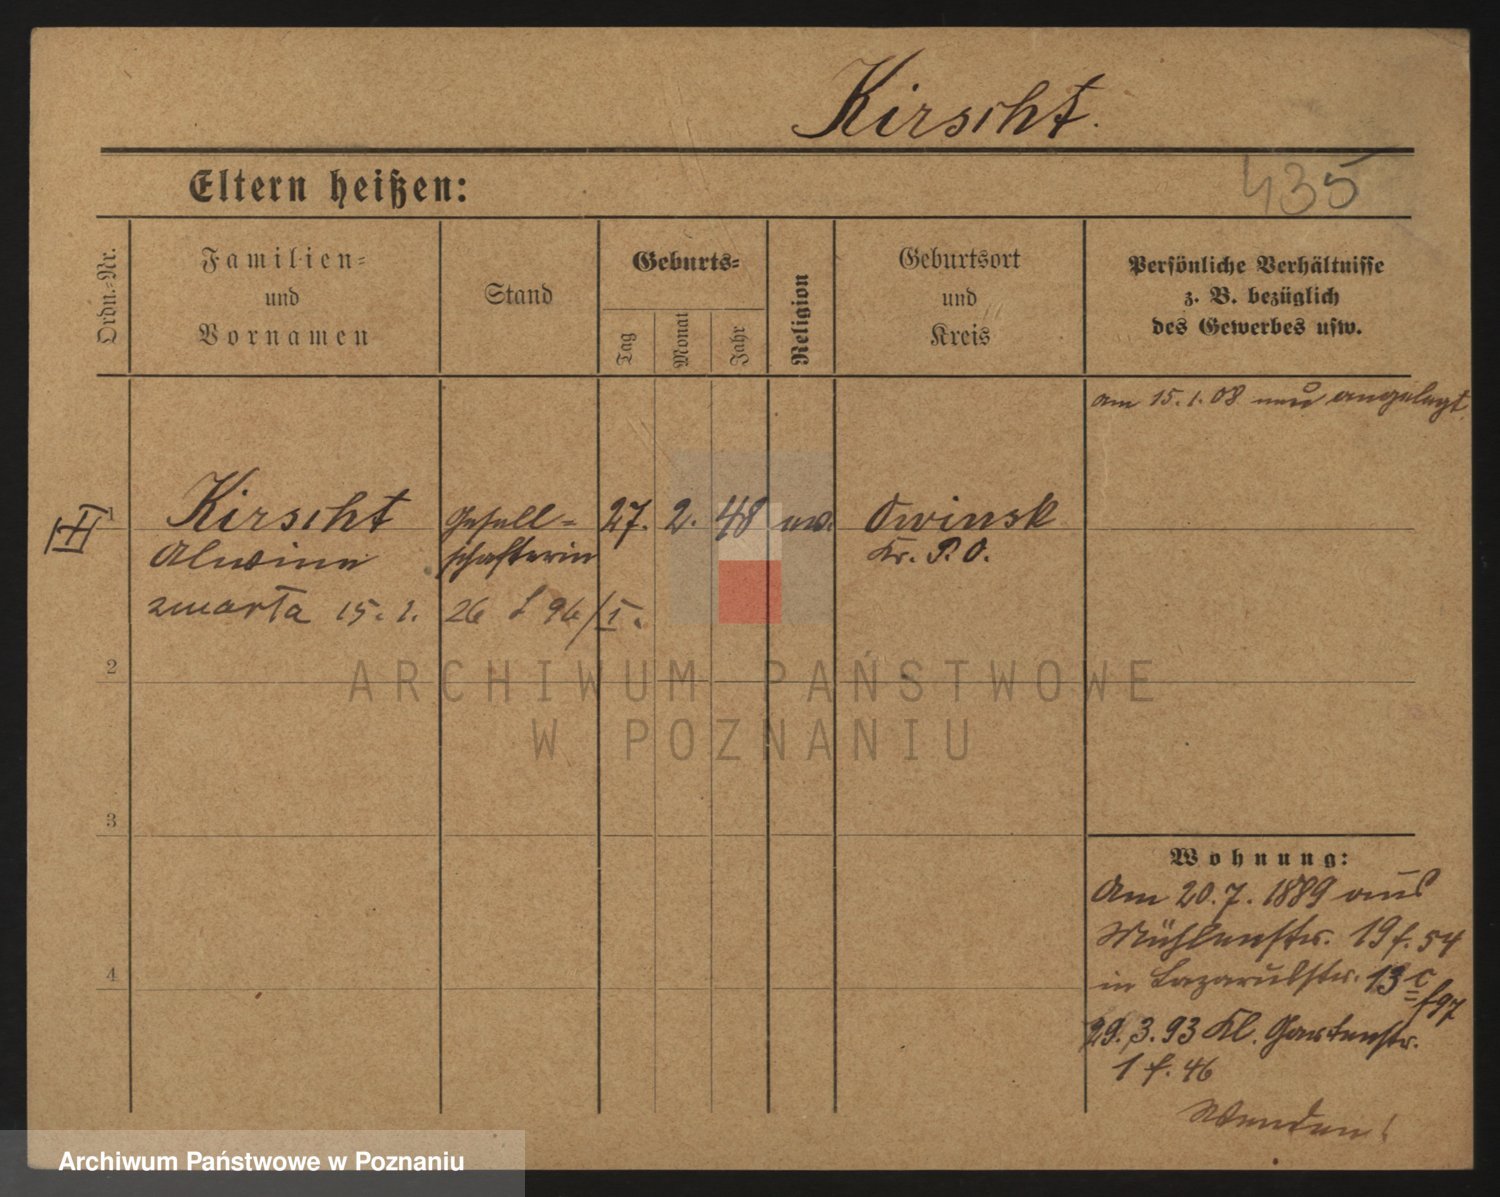 Kirscht.
Eltern heißen:
435
Ordn.-Nr.
Familien-
und
Vornamen
Stand
Geburts-
Tag
Monat
Jahr
Religion
Geburtsort
und
Kreis
Persönliche Verhältnisse
z. B. bezüglich
des Gewerbes usw.
am 15.1.08 neu angelegt
1
Kirscht Gesell- 27. 2. 48 ew. Owinsk
Alwine schafterin Kr. P.O.
zmarła 15.1. 26 L 96/I.
2
ARCHIWUM PAŃSTWOWE
W POZNANIU
3
Wohnung:
Am 20.7.1889 aus
Mühlenstr. 19 f. 54
4
in Lazarusstr. 13 c f 97
29.3.93 Kl. Gartenstr.
1 f. 46
Wenden!
Archiwum Państwowe w Poznaniu